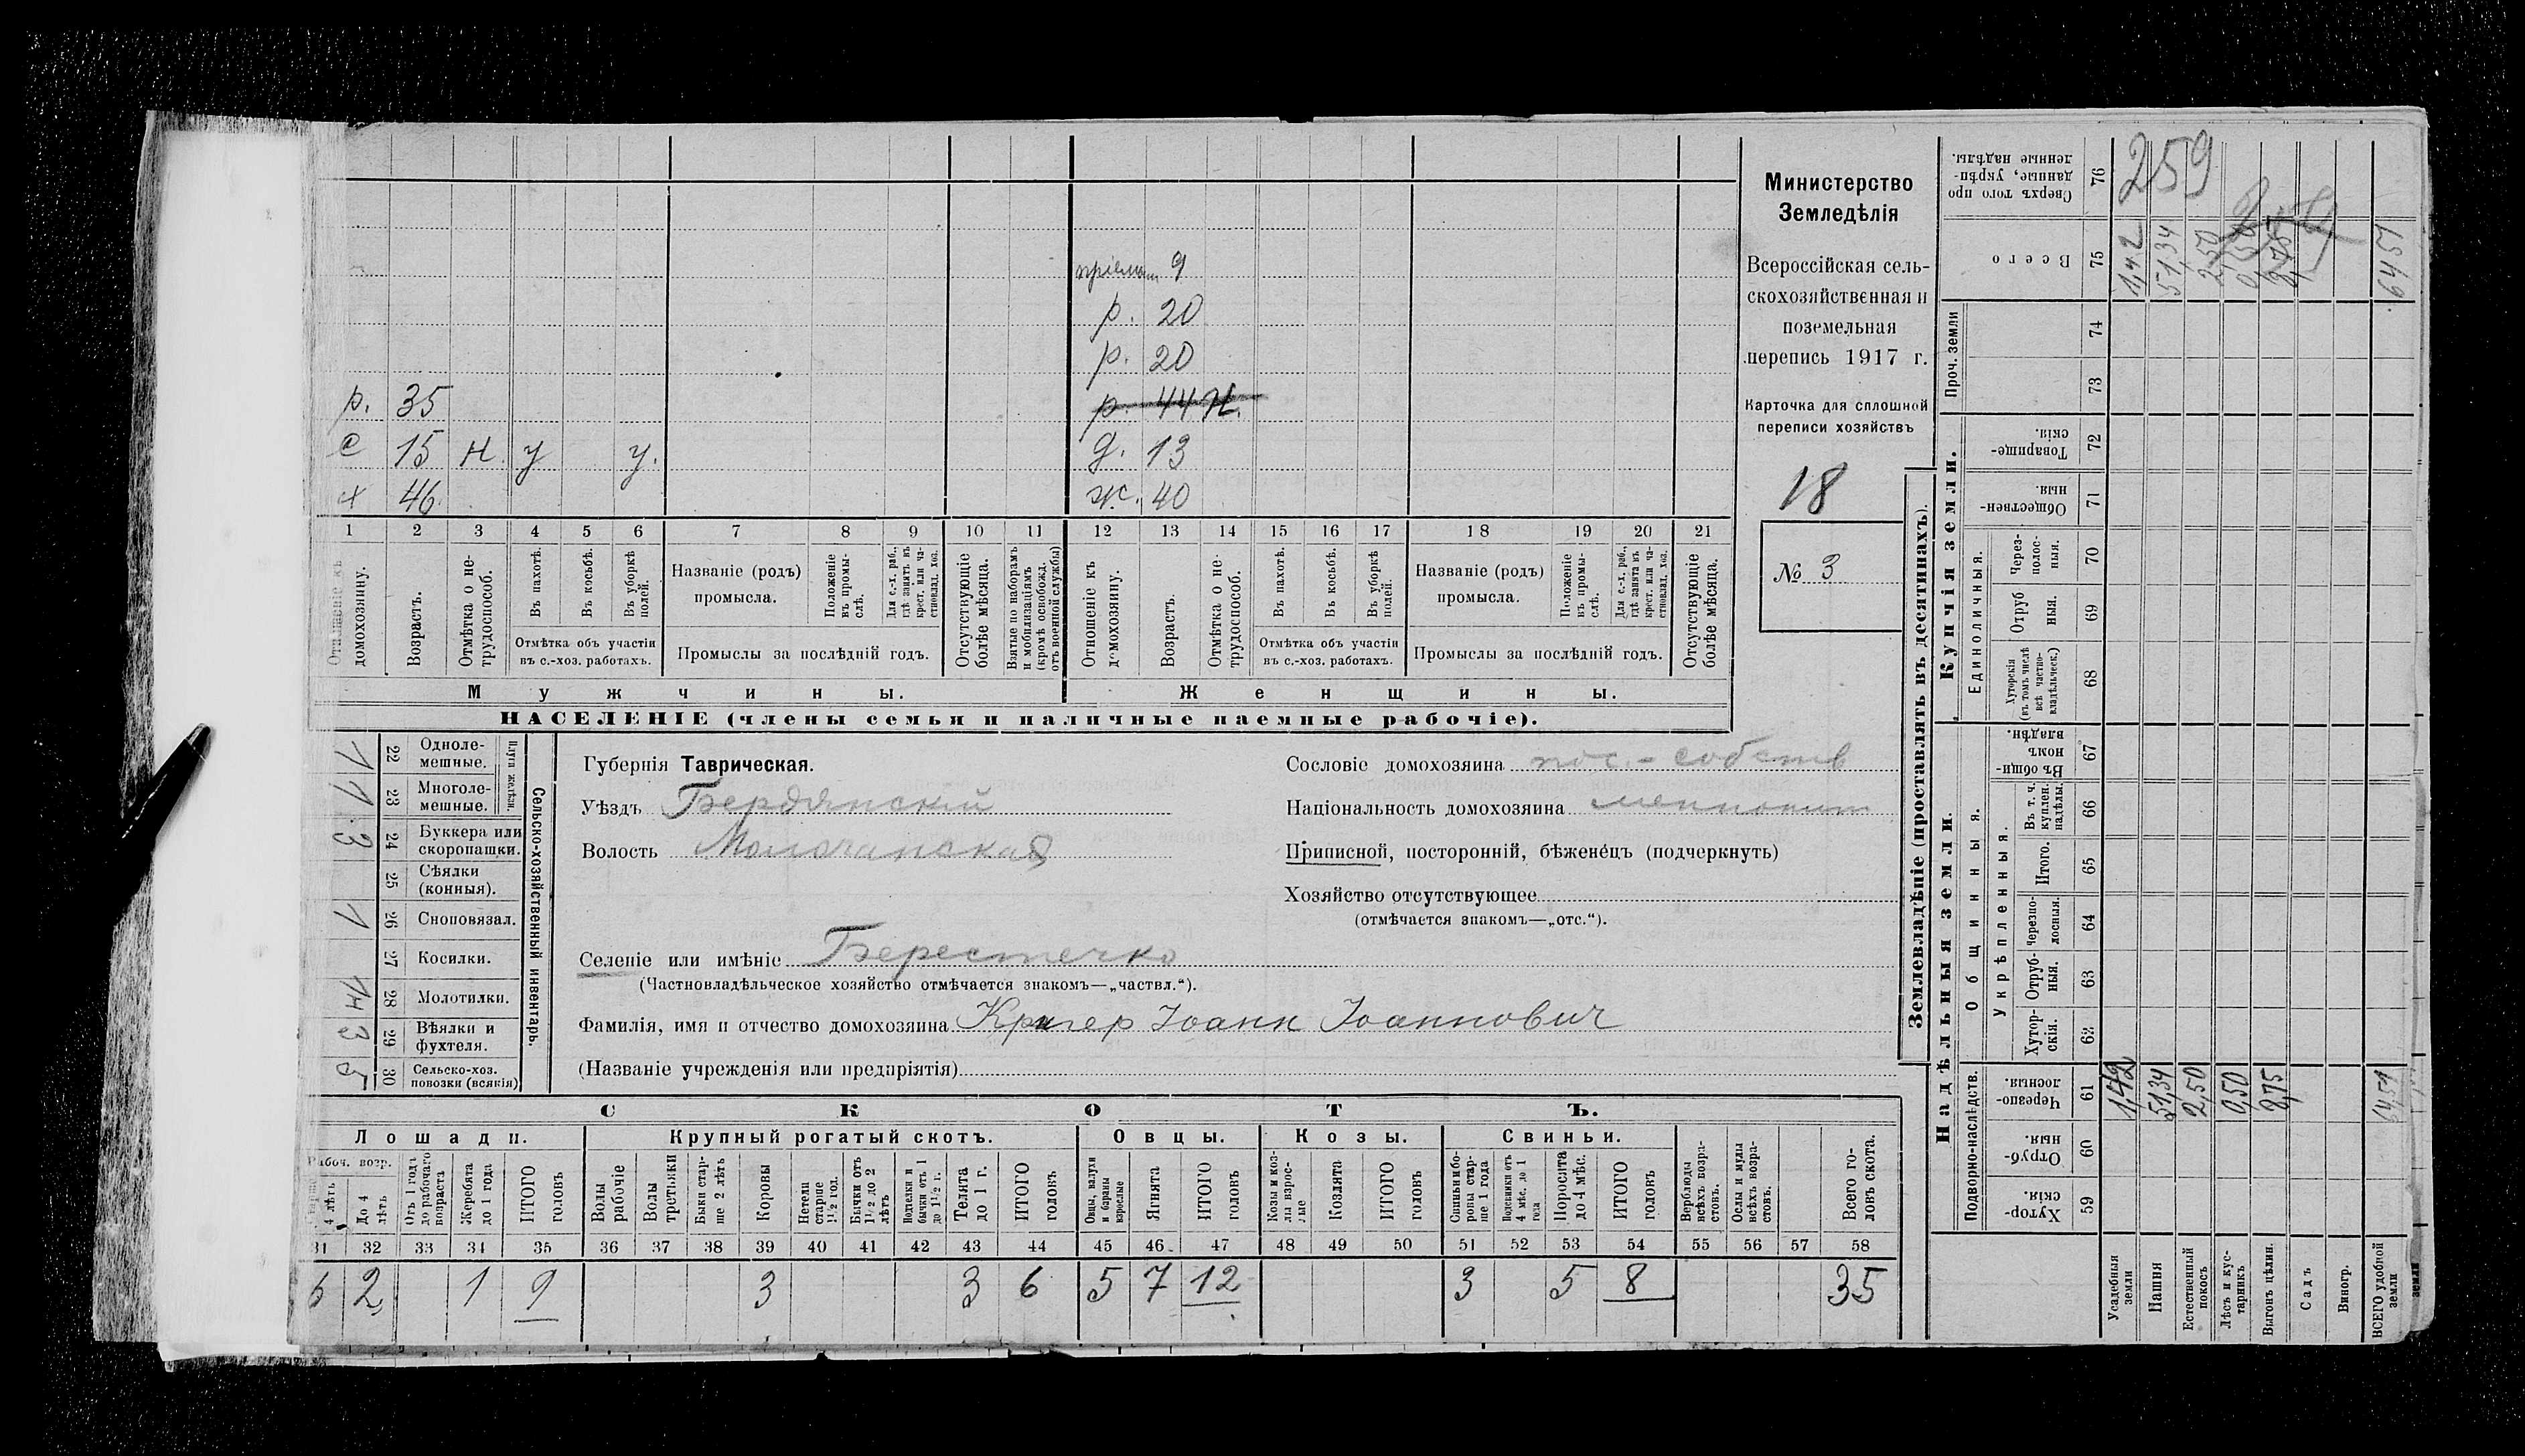 пріемыш 9
р. 20
р. 20
р. 35 р. 44 н.
с 15 н. у у. д. 13
х 46 ж. 40
1 2 3 4 5 6 7 8 9 10 11 12 13 14 15 16 17 18 19 20 21
Отношеніе къ домохозяину.
Возрастъ.
Отмѣтка о не-трудоспособ.
Въ пахотѣ.
Въ косьбѣ.
Въ уборкѣ полей.
Отмѣтка объ участіи въ с.-хоз. работахъ.
Названіе (родъ) промысла.
Положеніе въ промы-слѣ.
Для с.-х. раб., гдѣ занятъ въ крест. или ча-стновлад. хоз.
Промыслы за послѣдній годъ.
Отсутствующіе болѣе мѣсяца.
Взятые по наборамъ и мобилизаціямъ (кромѣ освобожд. отъ военной службы)
Отношеніе къ домохозяину.
Возрастъ.
Отмѣтка о не-трудоспособ.
Въ пахотѣ.
Въ косьбѣ.
Въ уборкѣ полей.
Отмѣтка объ участіи въ с.-хоз. работахъ.
Названіе (родъ) промысла.
Положеніе въ промы-слѣ.
Для с.-х. раб., гдѣ занята въ крест. или ча-стновлад. хоз.
Промыслы за послѣдній годъ.
Отсутствующіе болѣе мѣсяца.
Мужчины. Женщины.
НАСЕЛЕНІЕ (члены семьи и наличные наемные рабочіе).
Министерство
Земледѣлія
Всероссійская сель-
скохозяйственная и
поземельная
перепись 1917 г.
Карточка для сплошной
переписи хозяйствъ
18
№ 3
Сельско-хозяйственный инвентарь.
Плуги желѣзн.
Одноле-мешные. 22 1
Многоле-мешные. 23 1
Буккера или скоропашки. 24 3
Сѣялки (конныя). 25
Сноповязал. 26 1
Косилки. 27
Молотилки. 28
Вѣялки и фухтеля. 29
Сельско-хоз. повозки (всякія) 30 5
Губернія Таврическая.
Уѣздъ Бердянскій
Волость Молочанская
Сословіе домохозяина пос.-собств
Національность домохозяина меннонит
Приписной, посторонній, бѣженецъ (подчеркнуть)
Хозяйство отсутствующее
(отмѣчается знакомъ—„отс.“).
Селеніе или имѣніе Берестечко
(Частновладѣльческое хозяйство отмѣчается знакомъ—„частвл.“).
Фамилія, имя и отчество домохозяина Кригер Іоанн Іоаннович
(Названіе учрежденія или предпріятія)
СКОТЪ.
Лошади. Крупный рогатый скотъ. Овцы. Козы. Свиньи.
Рабоч. возр.
4 лѣтъ
До 4 лѣтъ
Отъ 1 года до рабочаго возраста
Жеребята до 1 года
ИТОГО головъ
Волы рабочіе
Волы третьяки
Быки стар-ше 2 лѣтъ
Коровы
Нетели старше 1½ год.
Бычки отъ 1½ до 2 лѣтъ
Подтелки и бычки отъ 1 до 1½ г.
Телята до 1 г.
ИТОГО головъ
Овцы, валухи и бараны взрослые
Ягнята
ИТОГО головъ
Козы и коз-лы взрос-лые
Козлята
ИТОГО головъ
Свиньи и бо-ровы стар-ше 1 года
Подсвинки отъ 4 мѣс. до 1 года
Поросята до 4 мѣс.
ИТОГО головъ
Верблюды всѣхъ возра-стовъ.
Ослы и мулы всѣхъ возра-стовъ.
Всего го-ловъ скота.
31 32 33 34 35 36 37 38 39 40 41 42 43 44 45 46 47 48 49 50 51 52 53 54 55 56 57 58
6 2 1 9 3 3 6 5 7 12 3 5 8 35
Землевладѣніе (проставлять въ десятинахъ).
Надѣльныя земли.
Купчія земли.
Проч. земли
Подворно-наслѣдств.
Общинныя.
Укрѣпленныя.
Единоличныя.
Хутор-скія. 59
Отруб-ныя. 60
Черезпо-лосныя. 61
Хутор-скія. 62
Отруб-ныя. 63
Черезпо-лосныя. 64
Итого. 65
Въ т. ч. куплен. надѣлы. 66
Въ общин-номъ владѣн. 67
Хуторскія (въ томъ числѣ всѣ частно-владѣльческ.) 68
Отруб ныя. 69
Через-полос-ныя. 70
Обществен-ныя. 71
Товарище-скія. 72
73
74
Всего 75
Сверхъ того про данные, укрѣп-ленные надѣлы. 76
259
Усадебныя земли 1,42 1,42
Пашня 51,34 51,34
Естественный покосъ 2,50 2,50
Лѣсъ и кус-тарникъ 0,50 0,50
Выгонъ цѣлин. 8,75 8,75
Садъ
Виногр.
ВСЕГО удобной земли 64,51 64,51